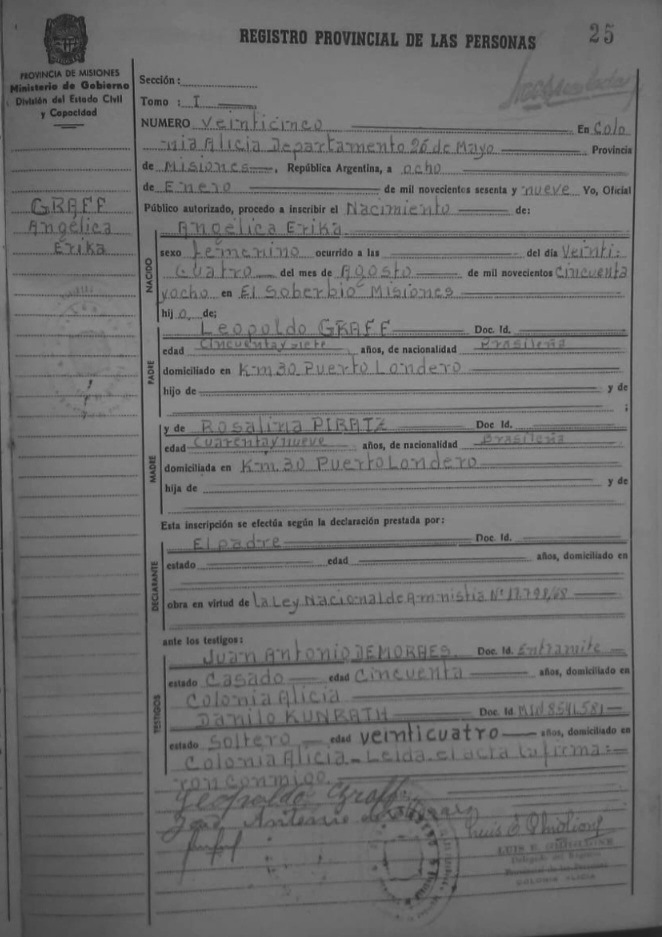 REGISTRO PROVINCIAL DE LAS PERSONAS
25
PROVINCIA DE MISIONES
Ministerio de Gobierno
División del Estado Civil
y Capacidad
GRAFF
Angélica
Erika
Sección:
Tomo : I
NUMERO Veinticinco En Colo
nia Alicia Departamento 26 de Mayo Provincia
de Misiones, República Argentina, a ocho
de Enero de mil novecientos sesenta y nueve Yo, Oficial
Público autorizado, procedo a inscribir el Nacimiento de:
Angélica Erika
NACIDO
sexo Femenino ocurrido a las del día Veinti-
cuatro del mes de Agosto de mil novecientos Cincuenta
y ocho en El Soberbio Misiones
hij a de;
PADRE
Leopoldo GRAFF Doc. Id.
edad Cincuenta y siete años, de nacionalidad Brasileña
domiciliado en Km. 30 Puerto Londero
hijo de y de
;
MADRE
y de Rosalina PIRATZ Doc Id.
edad Cuarenta y nueve años, de nacionalidad Brasileña
domiciliada en Km. 30 Puerto Londero
hija de y de
Esta inscripción se efectúa según la declaración prestada por:
DECLARANTE
El padre Doc. Id.
estado edad años, domiciliado en
obra en virtud de la Ley Nacional de Amnistia Nº
ante los testigos:
TESTIGOS
Juan Antonio DEMORAES Doc. Id. En tramite
estado Casado edad Cincuenta años, domiciliado en
Colonia Alicia
Danilo KUNRATH Doc. Id. MId 8541.581
estado Soltero edad veinticuatro años, domiciliado en
Colonia Alicia - Leida el acta la firma=
ron conmigo.
Leopoldo Graff
Antonio
LUIS E.
Delegado del Registro
Provincial de las Personas
COLONIA ALICIA